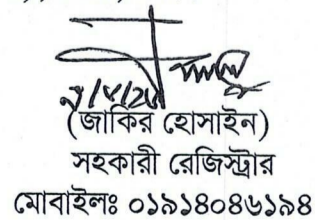 (জাকির হোসাইন)
সহকারী রেজিস্ট্রার
মোবাইলঃ ০১৯১৪০৪৬১৯৪